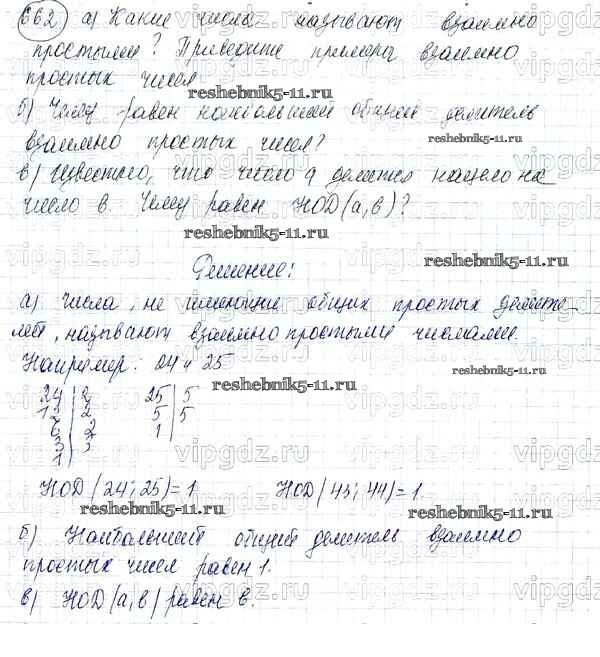 662 а) Какие числа называют взаимно
простыми? Приведите примеры взаимно
простых чисел
reshebnik5-11.ru
б) Чему равен наибольший общий делитель
reshebnik5-11.ru
взаимно простых чисел?
в) Известно, что число а делится нацело на
число в. Чему равен НОД(а,в)?
reshebnik5-11.ru
reshebnik5-11.ru
Решение:
а) Числа, не имеющие общих простых делите-
лей, называют взаимно простыми числами.
Например: 24 и 25
reshebnik5-11.ru
reshebnik5-11.ru
24 | 2 25 | 5
12 | 2 5 | 5
6 | 2 1
3 | 3
1
НОД(24; 25)=1 НОД(43; 44)=1.
reshebnik5-11.ru reshebnik5-11.ru
б) Наибольший общий делитель взаимно
простых чисел равен 1.
в) НОД(а,в) равен в.
vipgdz